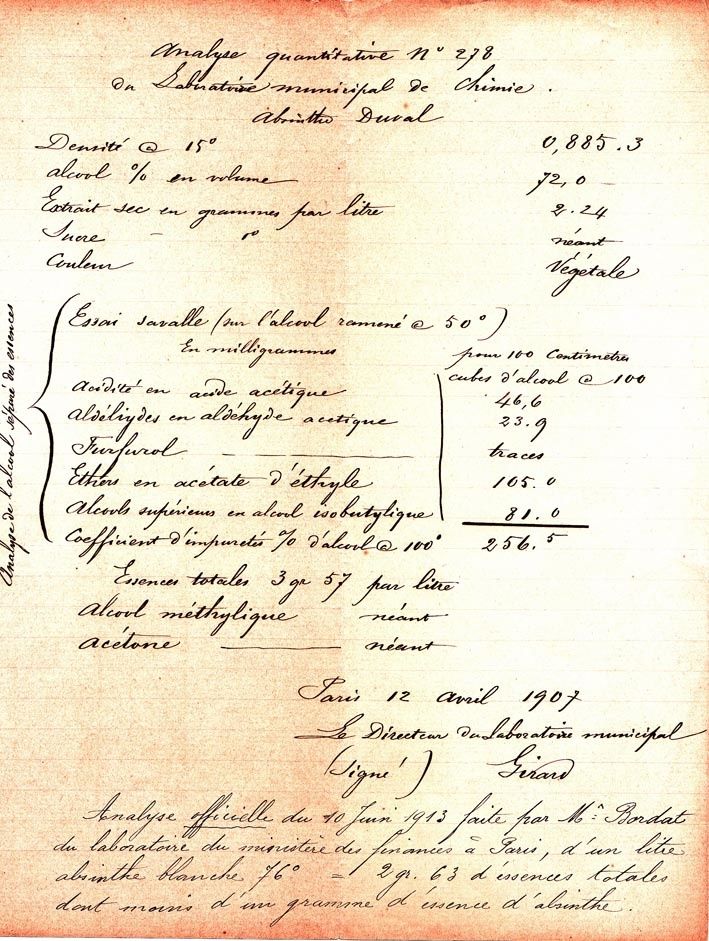 Analyse quantitative N° 278
du Laboratoire municipal de Chimie.
Absinthe Duval
Densité @ 15° 0,885.3
alcool % en volume 72,0
Extrait sec en grammes par litre 2.24
Sucre — d° néant
Couleur Végétale
Analyse de l'alcool séparé des essences
Essai savalle (sur l'alcool ramené @ 50°)
En milligrammes pour 100 Centimètres
cubes d'alcool @ 100
Acidité en acide acétique 46,6
Aldéhydes en aldéhyde acetique 23.9
Furfurol traces
Ethers en acétate d'éthyle 105.0
Alcools supérieurs en alcool isobutylique 81.0
Coefficient d'impuretés % d'alcool @ 100° 256.5
Essences totales 3 gr 57 par litre
Alcool méthylique néant
acétone néant
Paris 12 avril 1907
Le Directeur du Laboratoire municipal
(signé) Girard
Analyse officielle du 10 Juin 1913 faite par Mr Bordat
du laboratoire du ministère des finances à Paris, d'un litre
absinthe blanche 76° = 2 gr. 63 d'essences totales
dont moins d'un gramme d'essence d'absinthe.